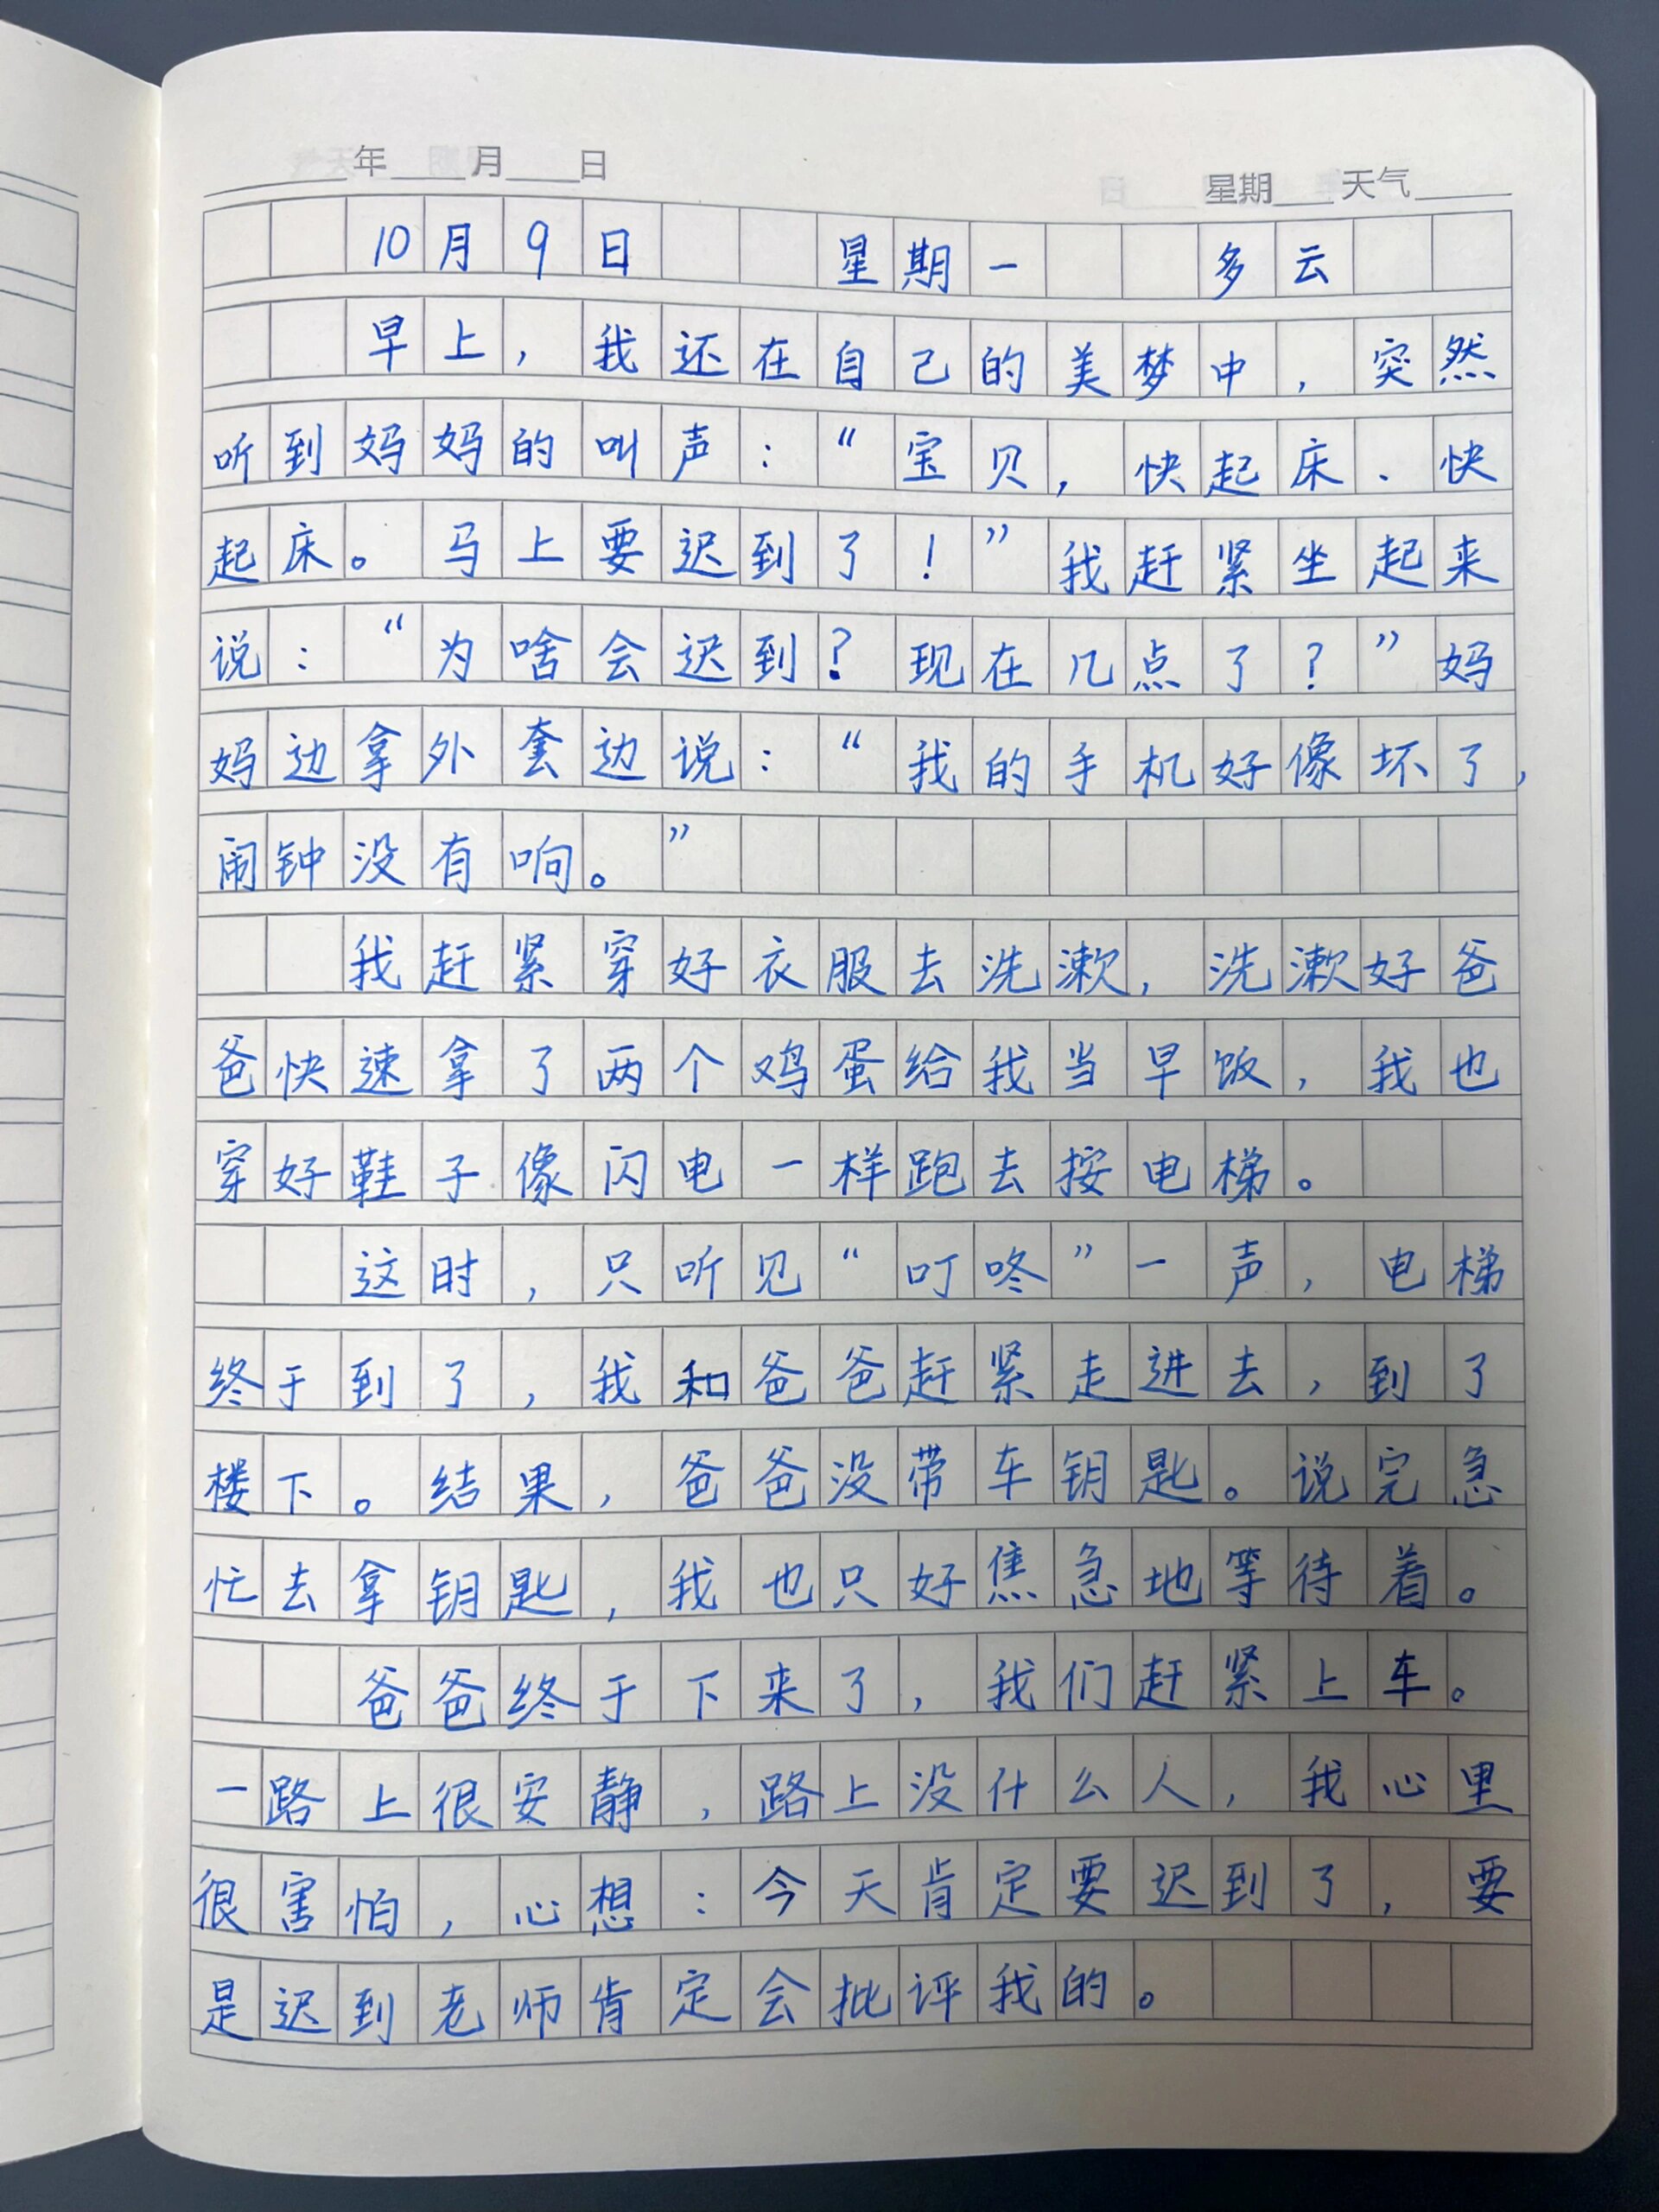 年 月 日 星期 天气
10月9日 星期一 多云
早上，我还在自己的美梦中，突然
听到妈妈的叫声：“宝贝，快起床、快
起床。马上要迟到了！”我赶紧坐起来
说：“为啥会迟到？现在几点了？”妈
妈边拿外套边说：“我的手机好像坏了，
闹钟没有响。”
我赶紧穿好衣服去洗漱，洗漱好爸
爸快速拿了两个鸡蛋给我当早饭，我也
穿好鞋子像闪电一样跑去按电梯。
这时，只听见“叮咚”一声，电梯
终于到了，我和爸爸赶紧走进去，到了
楼下。结果，爸爸没带车钥匙。说完急
忙去拿钥匙，我也只好焦急地等待着。
爸爸终于下来了，我们赶紧上车。
一路上很安静，路上没什么人，我心里
很害怕，心想：今天肯定要迟到了，要
是迟到老师肯定会批评我的。